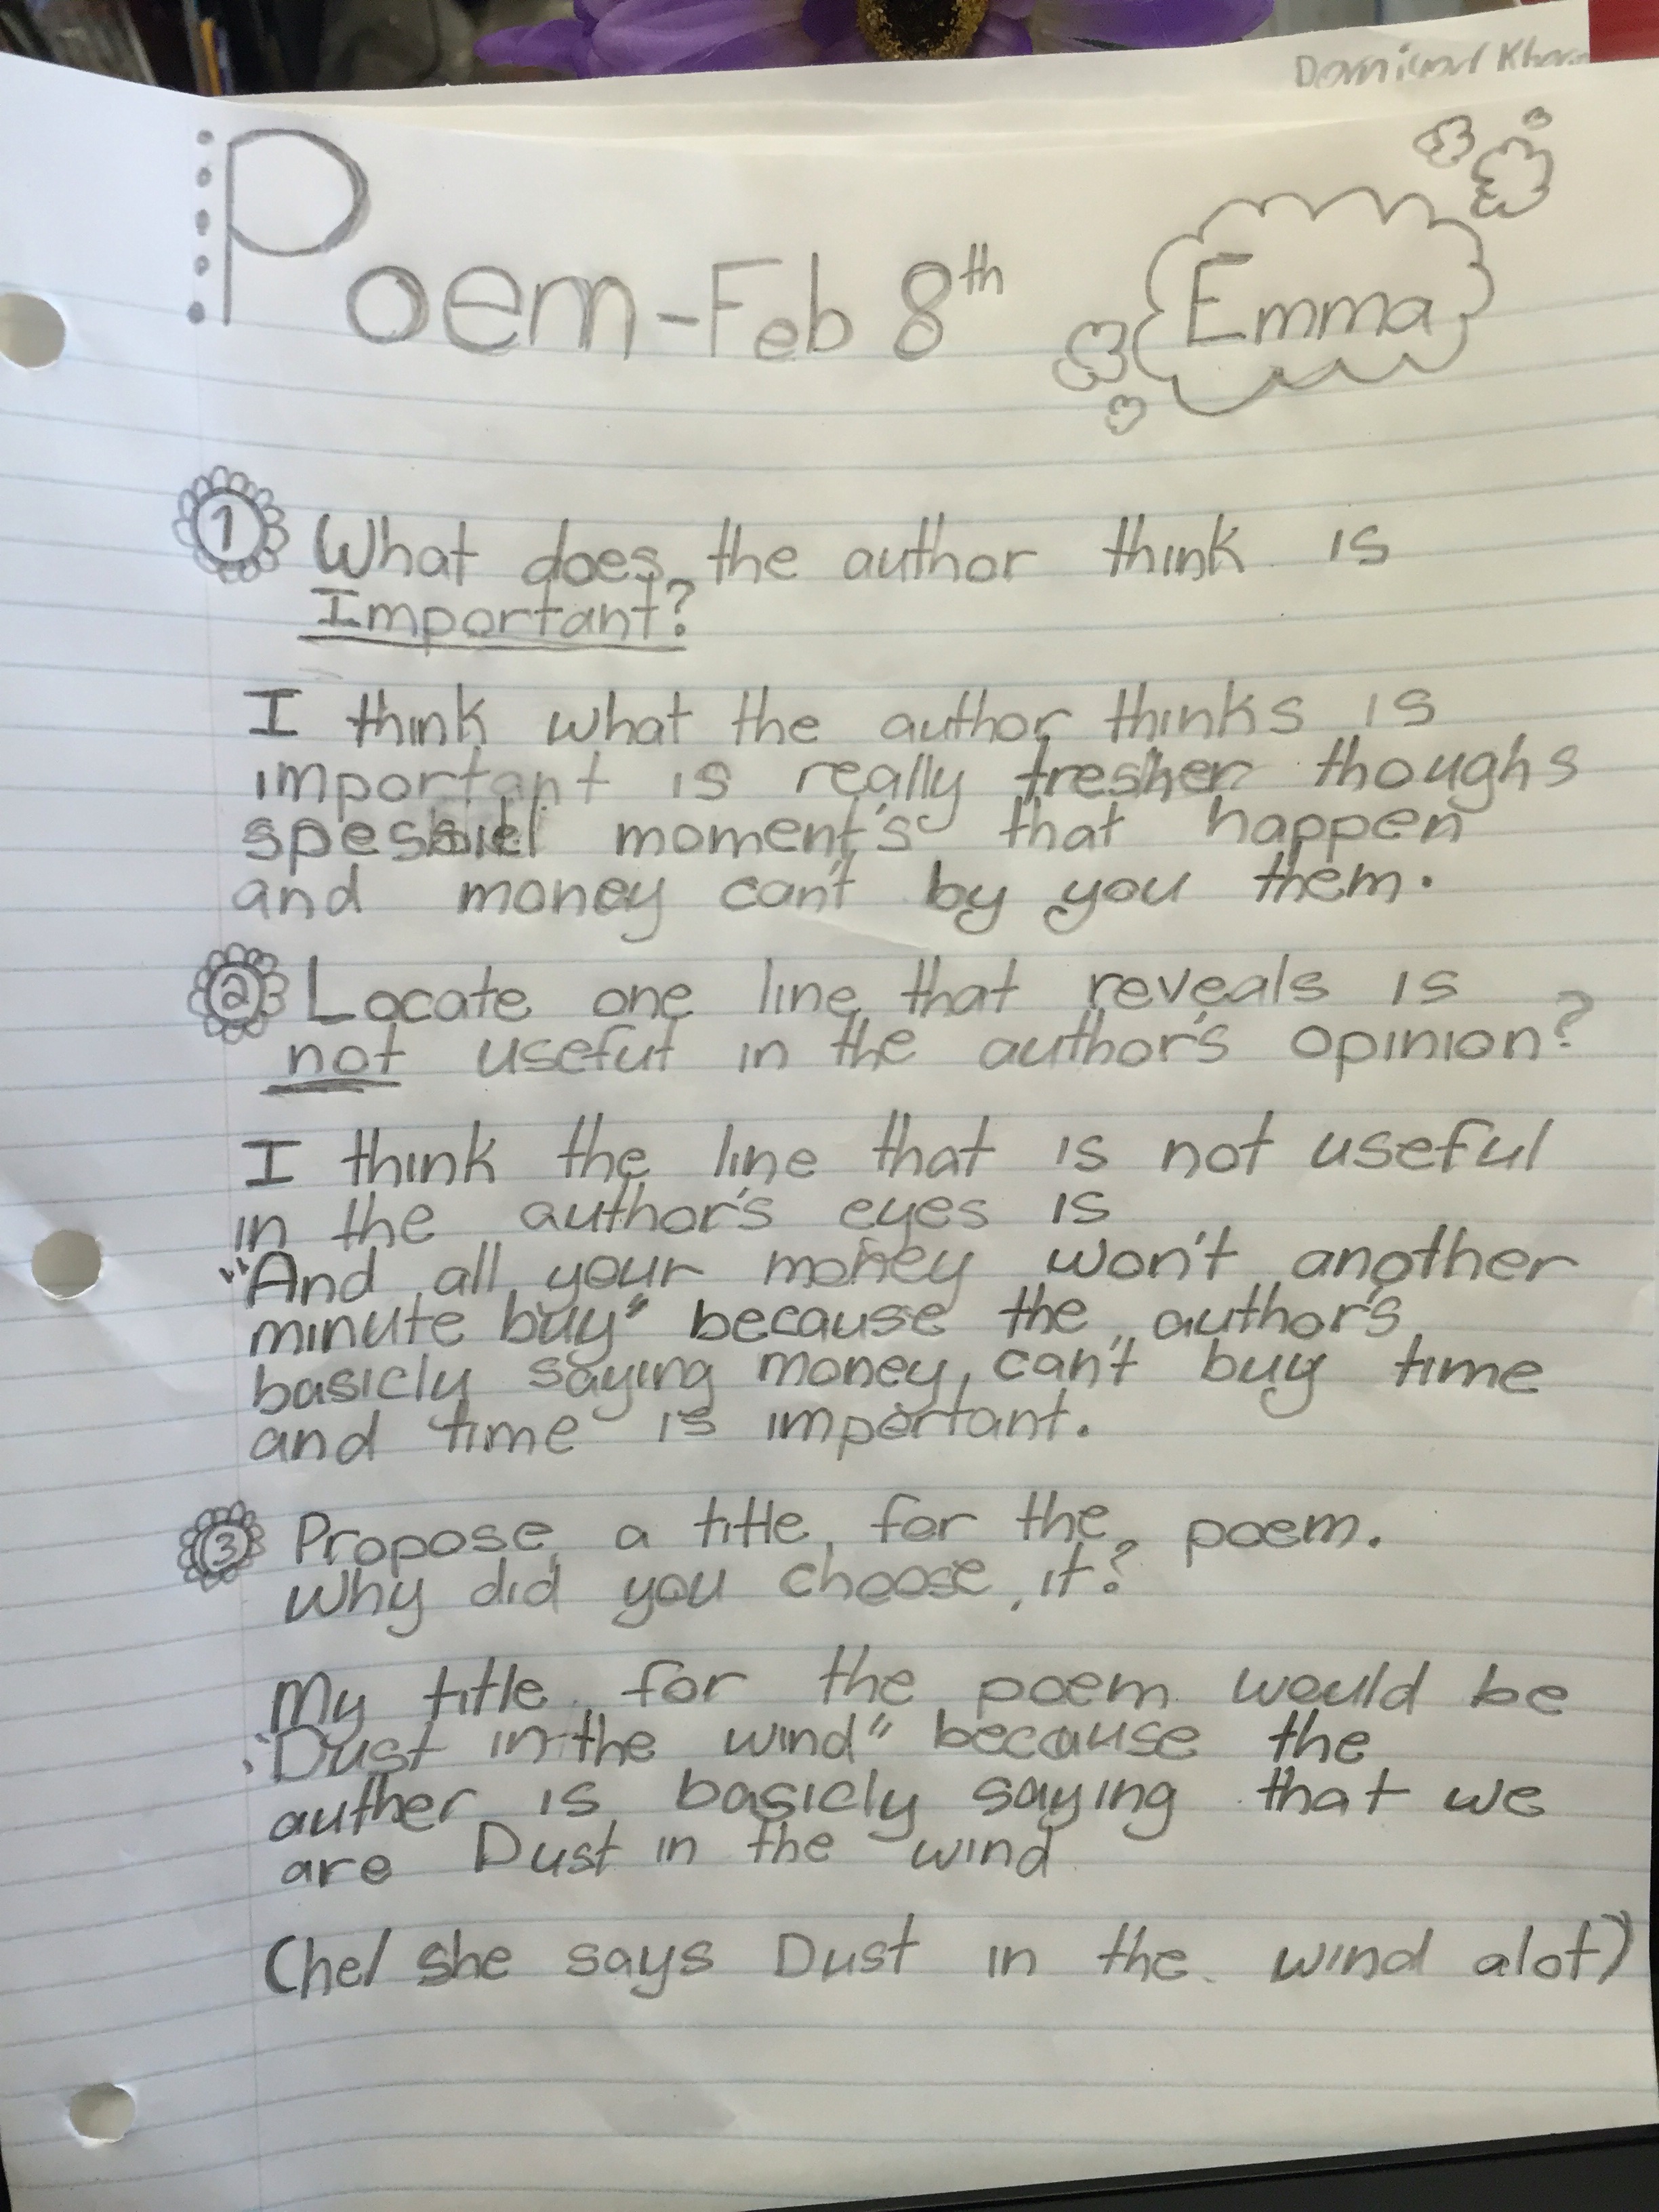 Poem-Feb 8th
Emma
1 What does the author think is
Important?
I think what the author thinks is
important is really tresher thoughs
moment's that happen
and money can't by you them.
2 Locate one line that reveals is
not useful in the author's opinion?
I think the line that is not useful
in the author's eyes is
"And all your money won't another
minute buy" because the author's
basicly saying money can't buy time
and time is important.
3 Propose a title for the poem.
Why did you choose it?
My title for the poem would be
"Dust in the wind" because the
auther is basicly saying that we
are Dust in the wind
(he/she says Dust in the wind alot)